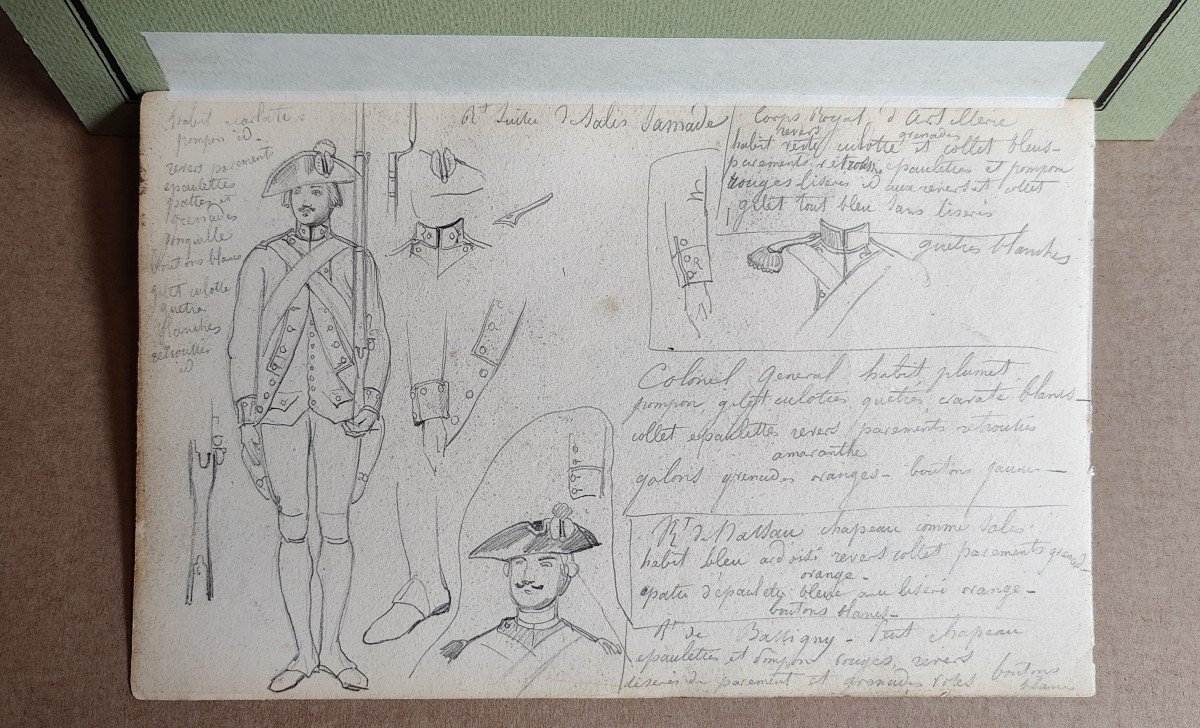 habit écarlate
pompon id
revers parement
epaulettes
pattes et
grenades
jonquille
boutons blancs
gilet culotte
guetre
blanches
retroussis
id
Rt Suisse de Salis Samade
Corps Royal d'Artillerie
revers grenades
habit veste culotte et collet bleus-
parements retroussis epaulettes et pompon
rouges liserés id aux revers et collet
gilet tout bleu sans liserés
guetres blanches
R
Colonel General habit plumet
pompon gilet culottes guêtres cravate blancs-
collet epaulettes revers parements retroussis
amaranthe
galons grenades oranges- boutons jaunes-
Rt de Nassau chapeau comme Salis
habit bleu ardoisé revers collet parements grenades
orange-
patte d'épaulette bleue au liseré orange-
boutons blancs-
Rt de Bassigny- Petit chapeau
epaulettes et pompon rouges revers
liserés du parement et grenades roses boutons
blancs